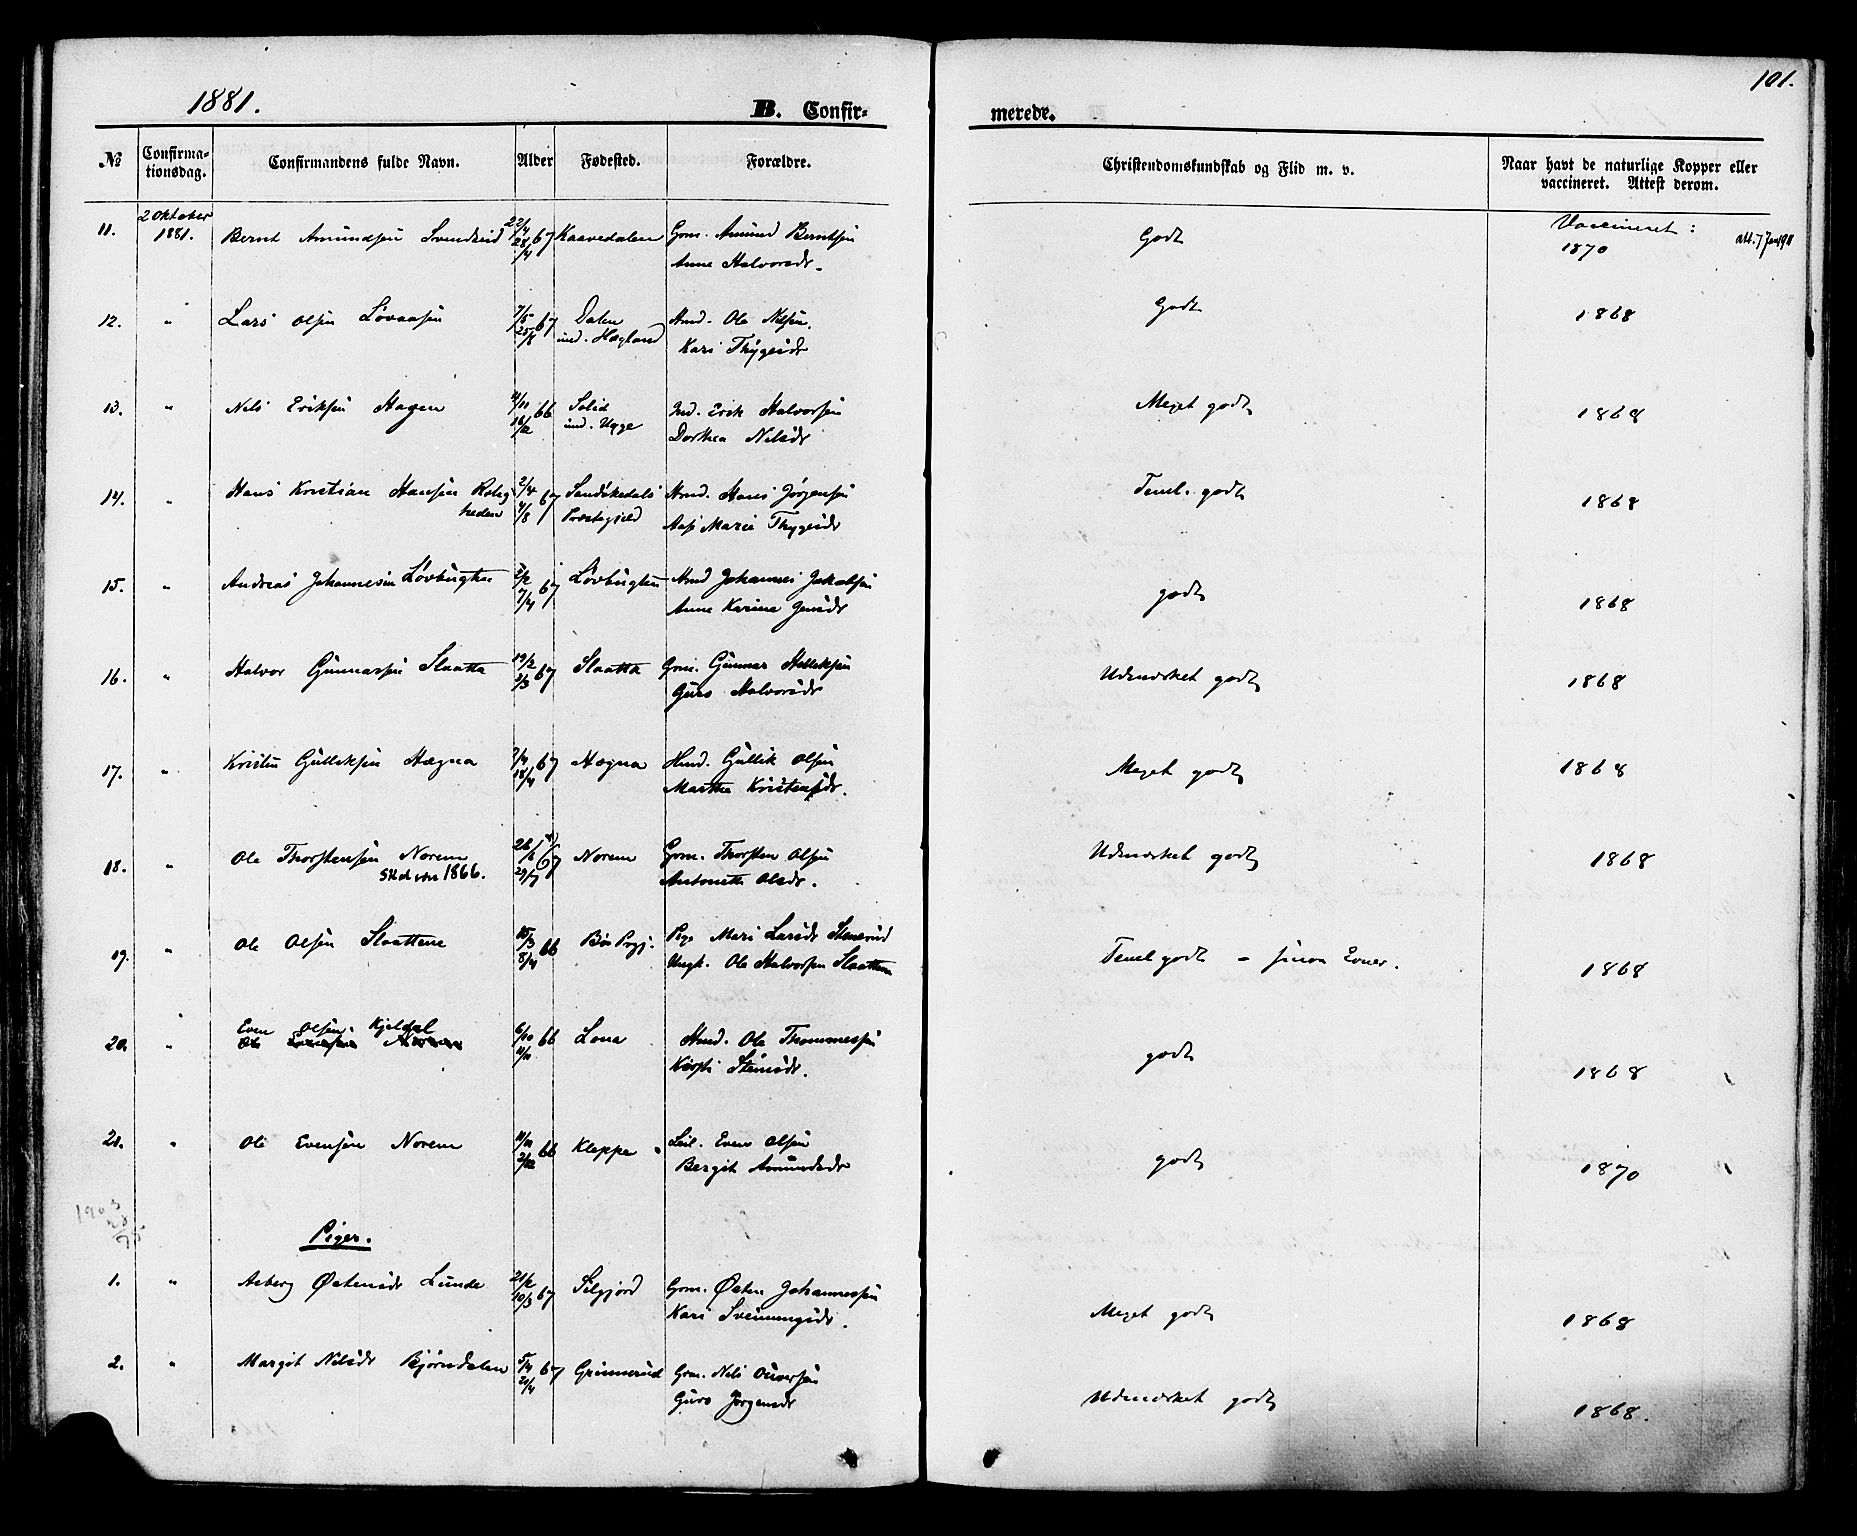 1881.
B. Confir-
merede.
101.
№
Confirma-
tionsdag.
Confirmandens fulde Navn.
Alder
Fødested.
Forældre.
Christendomskundskab og Flid m. v.
Naar havt de naturlige Kopper eller
vaccineret. Attest derom.
11. 2 Oktober 1881. Bernt Amundsen Svendseid 22/4 28/4 67 Kaavedalen Grm. Amund Berntsen
Anne Halvorsdr.
Godt
Vaccineret:
1870
att. 7 Jan
12. " Lars Olsen Løvaasen 67 Dalen
und. Hægland
Hmd. Ole Nilsen.
Kari Thygesdr
Godt
1868
13. " Nils Eriksen Hagen 66 Solid
und. Ugge
Ind. Erik Halvorsen
Dorthea Nilsdr
Meget godt
1868
14. " Hans Kristian Hansen Rolig
heden
2/4 4/8 67 Sandøkedals
Præstegjeld
Hmd. Hans Jørgensen
Marie Thygesdr
Temel. godt
1868
15. " Andreas Johannesen Løvbugten 2/2 7/4 67 Løvbugten Hmd Johannes Jakobsen
Anne Karine Jensdr
godt
1868
16. " Halvor Gunnarsen Slaatta 19/2 3/3 67 Slaatta Grm. Gunnar Halleksen
Guro Halvorsdr
Udmærket godt
1868
17. " Kristen Gulleksen Hægna 7/4 18/4 67 Hægna Hmd. Gullik Olsen
Marthe Kristensdr.
Meget godt
1868
18. " Ole Thorstensen Norem
1866.
26/6 29/7 67 Norem Grm. Thorsten Olsen
Antonette Olsdr.
Udmærket godt
1868
19. " Ole Olsen Slaattene 15/3 8/4 66 Bøe Prgj. Pige Mari Larsdr Stenerud
Ungk. Ole Halvorsen Slaattene
Temel godt – smaa Evner.
1868
20. " Even Olsen Kjeldal
6/10 66 Lona Hmd. Ole Thommessen
Kirsti Stensdr.
godt
1868
21. " Ole Evensen Norem 66 Kleppe Leil. Even Olsen
Bergit Amundsdr
godt
1870
1903
Piger.
1. " Asberg Østensdr Lunde 21/2 10/3 67 Siljord Grm. Østen Johannessen
Kari Sveinungsdr.
Meget godt
1868
2. " Margit Nilsdr Bjørndalen 5/4 21/4 67 Grimmerud Grm. Nils Oliversen
Guro Jørgensdr
Udmærket godt
1868.